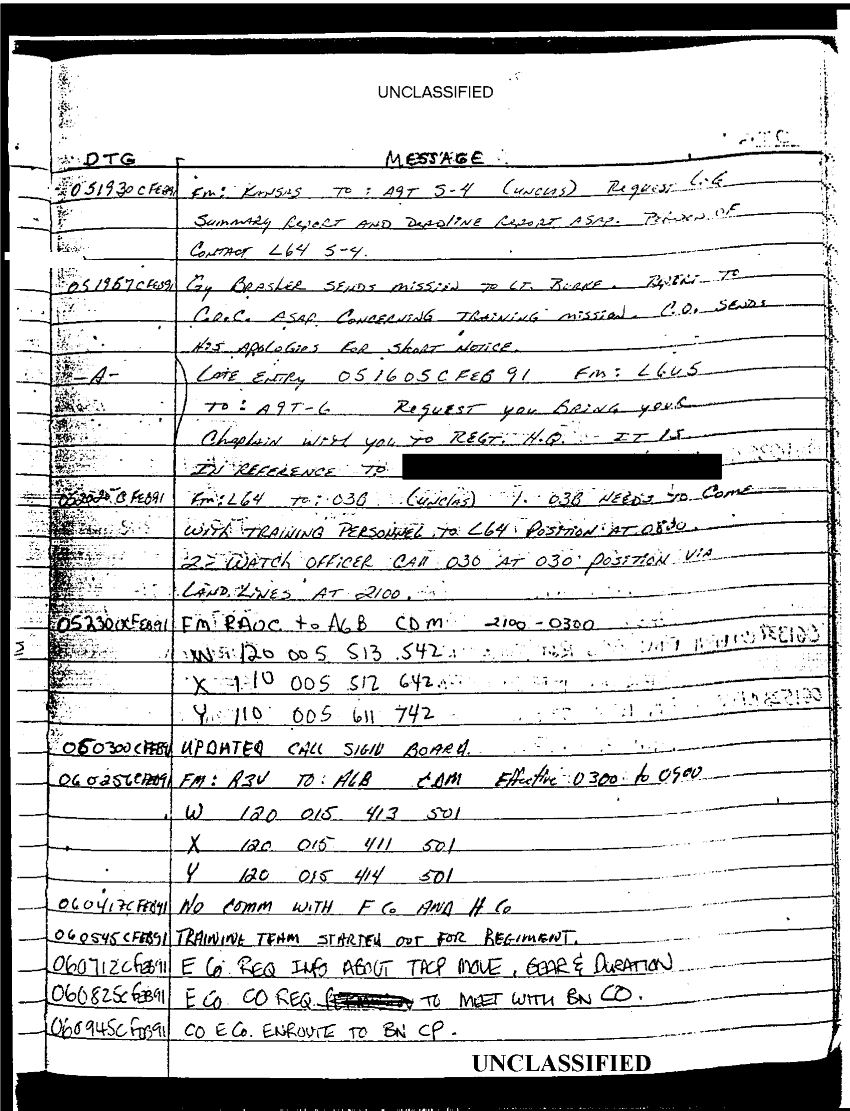 UNCLASSIFIED
DTG MESSAGE
051930CFEB91 Fm: KANSAS TO: A9T S-4 (UNCLAS) REQUEST
SUMMARY REPORT AND DEADLINE REPORT ASAP. OF
CONTACT L64 S-4.
051957CFEB91 Gy BRASHER SENDS MISSION TO LT. BURKE. TO
C.O.C. ASAP CONCERNING TRAINING MISSION. C.O. SENDS
HIS APOLOGIES FOR SHORT NOTICE.
-A- LATE ENTRY 051605CFEB 91 Fm:
TO: A9T-6 REQUEST you BRING your
Chaplain with you TO REGT. H.Q. IT IS
IN REFERENCE TO
FEB91 Fm: L64 TO: 03B (UNCLAS) 1. 03B NEEDS TO COME
WITH TRAINING PERSONNEL TO L64 POSITION AT 0830.
2- WATCH OFFICER CALL 030 AT 030 POSITION VIA
LAND LINES AT 2100.
052300CFEB91 FM RAOC to A6B CDM 2100-0300
W 120 005 513 542
X 110 005 512 642
Y 110 005 611 742
060300CFEB91 UPDATED CALL SIGN BOARD.
060256CFEB91 FM: R3V TO: A6B CDM Effective 0300 to 0900
W 120 015 413 501
X 120 015 411 501
Y 120 015 414 501
060417CFEB91 NO COMM WITH F Co AND H Co
060545CFEB91 TRAINING TEAM STARTED OUT FOR REGIMENT.
060712CFEB91 E Co. REQ INFO ABOUT TACP MOVE, GEAR & DURATION
060825CFEB91 E Co. CO REQ TO MEET WITH BN CO.
060945CFEB91 CO E Co. ENROUTE TO BN CP.
UNCLASSIFIED